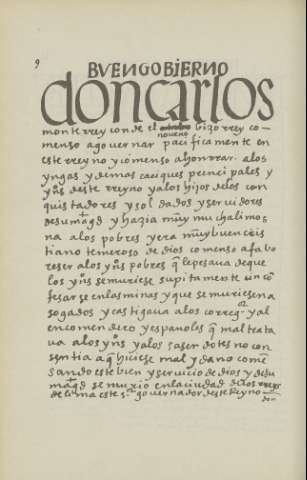 9
BVEN GOBIERNO
don carlos
monterrey conde el bizorrey co-
noueno
menso a gouernar pacificamente en
este rreyno y comenso a honrrar a los
yngas y demas caciques prencipales y
yos deste rreyno y a los hijos de los con
quistadores y soldados y seruidores
de su magd y hazia muy mucha limos
na a los pobres y era muy buen cris
tiano temeroso de dios comenso a fabo
reser a los yos pobres q le pesaua de que
los yos se muriese supitamente un cō
fesar se en las minas y que se muriesen a
sogados y castigaua a los corregor y al
encomendero y españoles q maltrata
ua a los yos y a los saserdotes no con
sentia a q hiciese mal y daño comē
sando este bien y seruicio de dios y de su
magd se murio en la ciudad de los rreys
de lima este sor gouernador deste rreyno
don